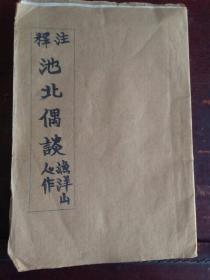 注釋
池北偶談
漁洋山
人作